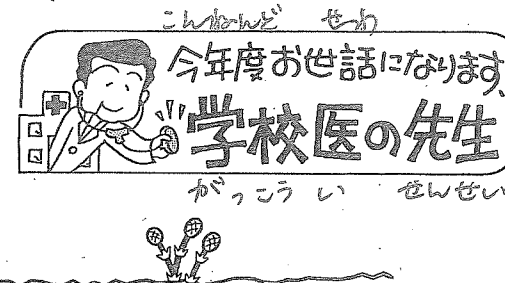 こんねんど せわ
今年度お世話になります、
学校医の先生
がっこう い せんせい